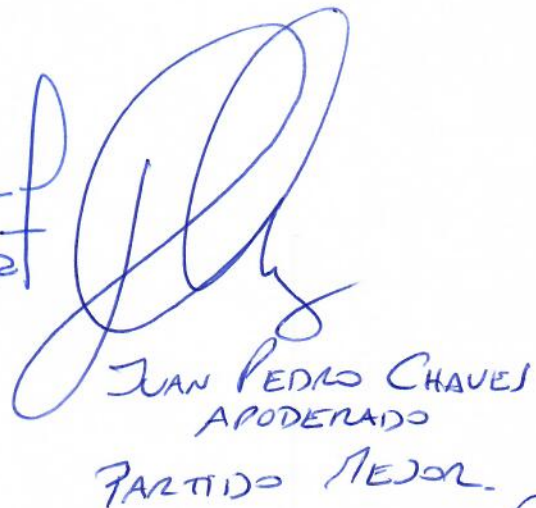 JUAN PEDRO CHAVES
APODERADO
PARTIDO MEJOR.